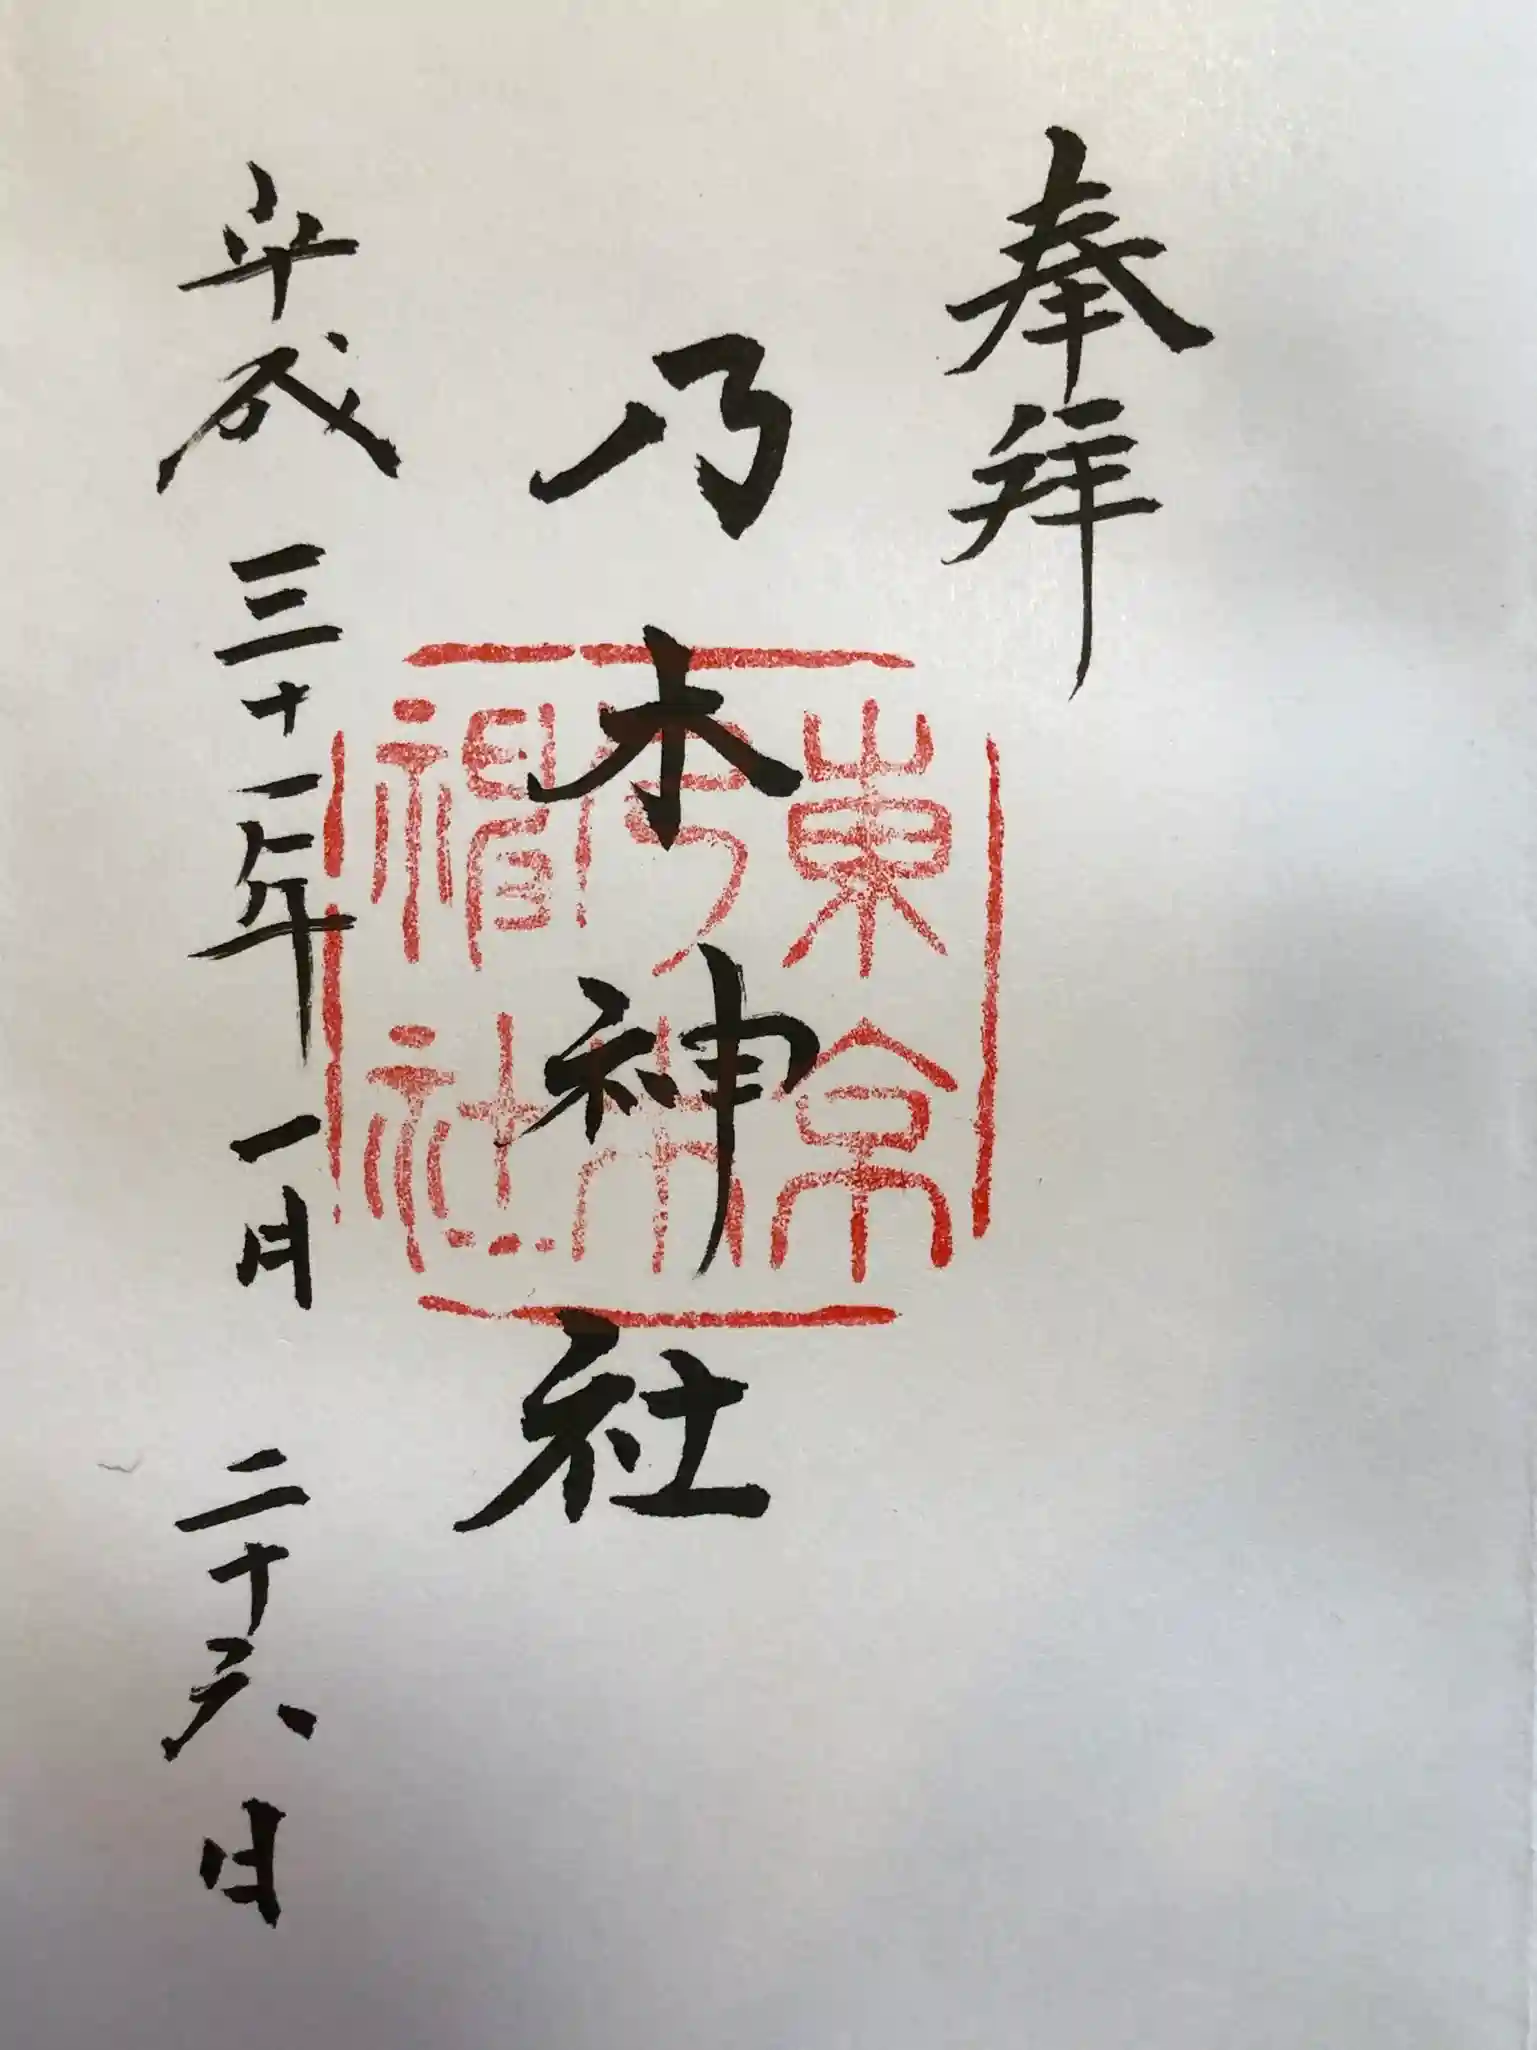 奉拜
乃木神社
平成三十一年一月二十六日
東京
乃木
神社